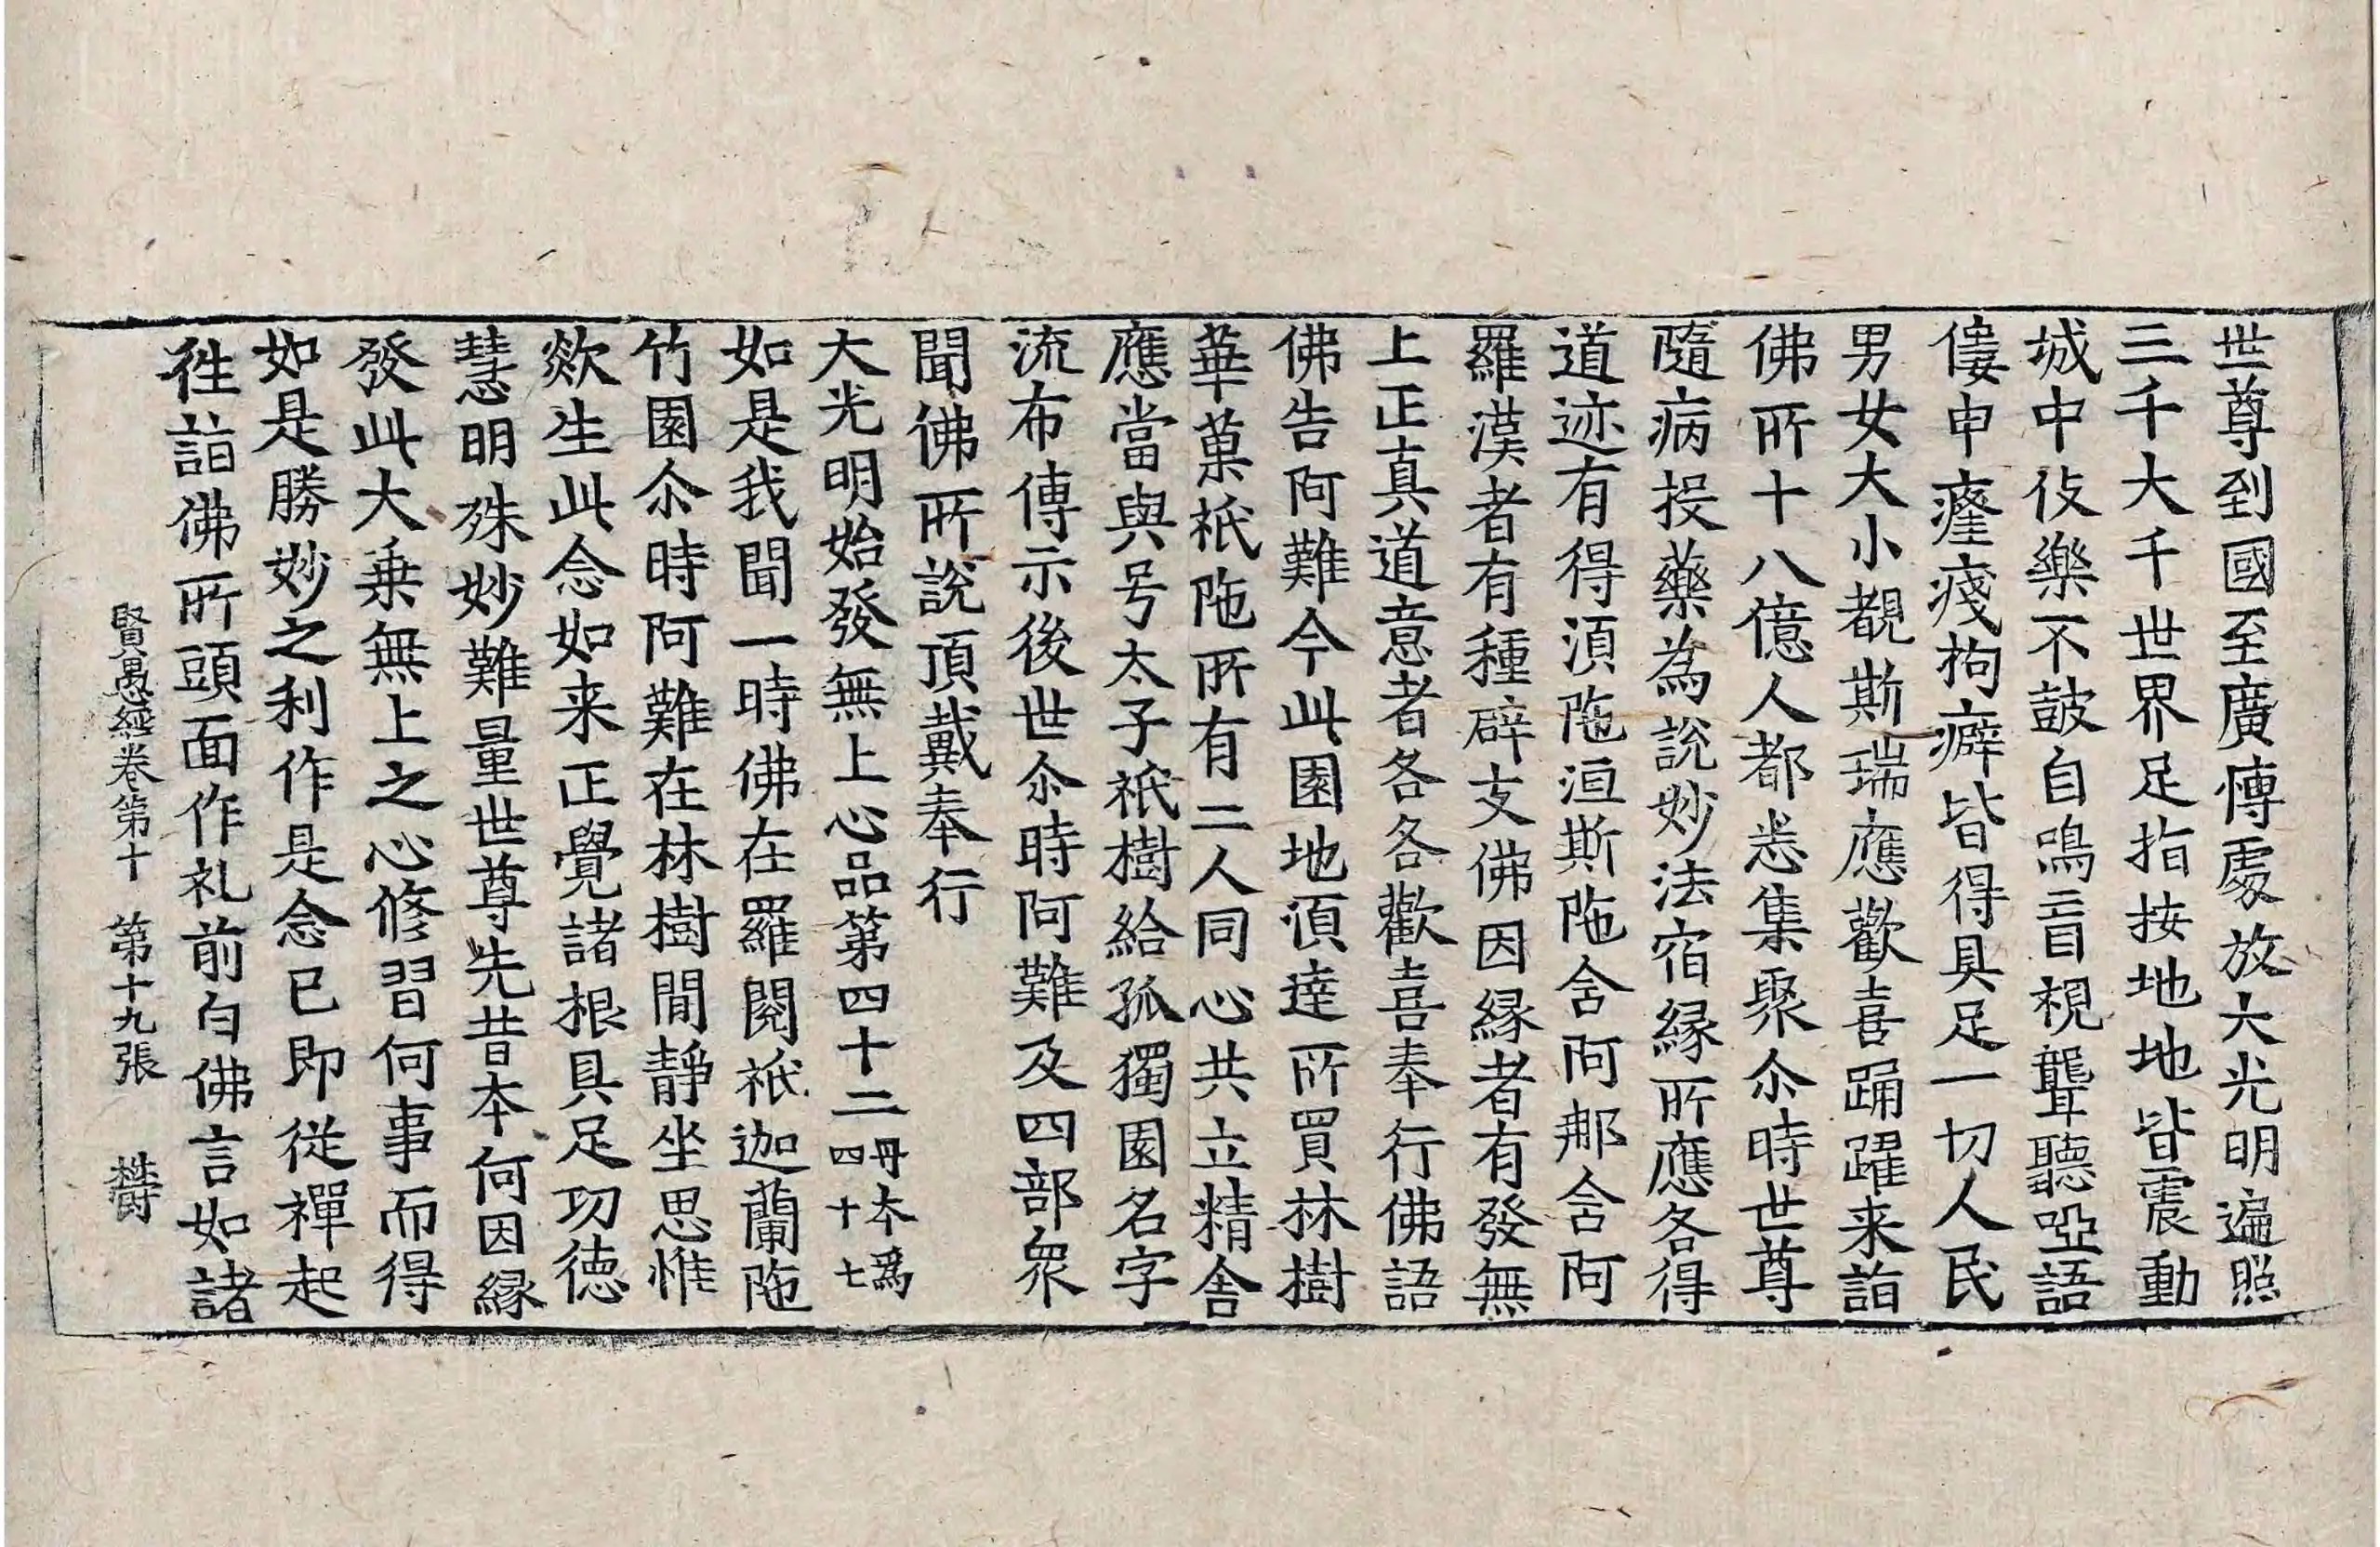 世尊到國至廣博處放大光明遍照
三千大千世界足指按地地皆震動
城中伎樂不鼓自鳴盲視聾聽啞語
僂申癃殘拘癖皆得具足一切人民
男女大小覩斯瑞應歡喜踊躍来詣
佛所十八億人都悉集聚尒時世尊
隨病投藥為說妙法宿緣所應各得
道迹有得湏陁洹斯陁含阿那含阿
羅漢者有種辟支佛因緣者有發無
上正真道意者各各歡喜奉行佛語
佛告阿難今此園地湏達所買林樹
華菓祇陁所有二人同心共立精舍
應當與号太子祇樹給孤獨園名字
流布傳示後世尒時阿難及四部衆
聞佛所說頂戴奉行
大光明始發無上心品第四十二 丹本爲四十七
如是我聞一時佛在羅閱祇迦蘭陁
竹園尒時阿難在林樹間靜坐思惟
欻生此念如来正覺諸根具足功德
慧明殊妙難量世尊先昔本何因緣
發此大乗無上之心修習何事而得
如是勝妙之利作是念已即從禪起
徃詣佛所頭面作礼前白佛言如諸
賢愚經卷第十 第十九張